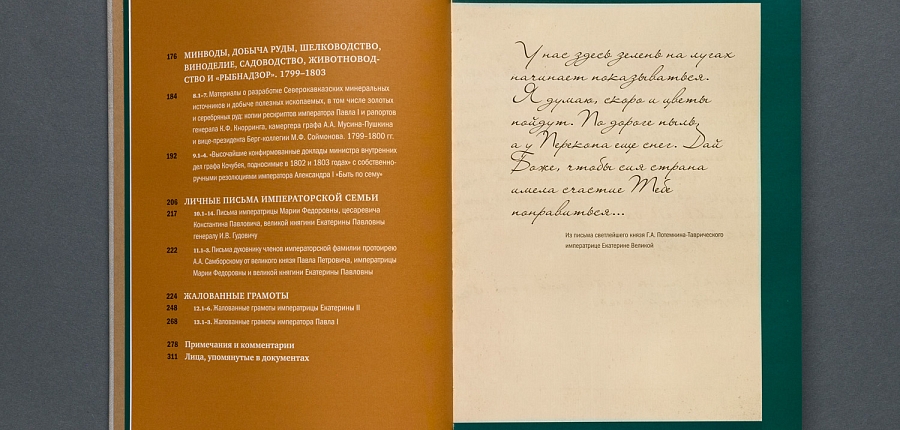 176 МИНВОДЫ, ДОБЫЧА РУДЫ, ШЕЛКОВОДСТВО,
ВИНОДЕЛИЕ, САДОВОДСТВО, ЖИВОТНОВОД-
СТВО И «РЫБНАДЗОР». 1799–1803
184 8.1–7. Материалы о разработке Северокавказских минеральных
источников и добыче полезных ископаемых, в том числе золотых
и серебряных руд: копии рескриптов императора Павла I и рапортов
генерала К.Ф. Кнорринга, камергера графа А.А. Мусина-Пушкина
и вице-президента Берг-коллегии М.Ф. Соймонова. 1799–1800 гг.
192 9.1–4. «Высочайшие конфирмованные доклады министра внутренних
дел графа Кочубея, подносимые в 1802 и 1803 годах» с собственно-
ручными резолюциями императора Александра I «Быть по сему»
206 ЛИЧНЫЕ ПИСЬМА ИМПЕРАТОРСКОЙ СЕМЬИ
217 10.1–14. Письма императрицы Марии Федоровны, цесаревича
Константина Павловича, великой княгини Екатерины Павловны
генералу И.В. Гудовичу
222 11.1–3. Письма духовнику членов императорской фамилии протоирею
А.А. Самборскому от великого князя Павла Петровича, императрицы
Марии Федоровны и великой княгини Екатерины Павловны
224 ЖАЛОВАННЫЕ ГРАМОТЫ
248 12.1–6. Жалованные грамоты императрицы Екатерины II
268 13.1–3. Жалованные грамоты императора Павла I
278 Примечания и комментарии
311 Лица, упомянутые в документах
У нас здесь зелень на лугах
начинает показываться.
Я думаю, скоро и цветы
пойдут. По дороге пыль,
а у Перекопа еще снег. Дай
Боже, чтобы сия страна
имела счастие Тебе
понравиться...
Из письма светлейшего князя Г.А. Потемкина-Таврического
императрице Екатерине Великой